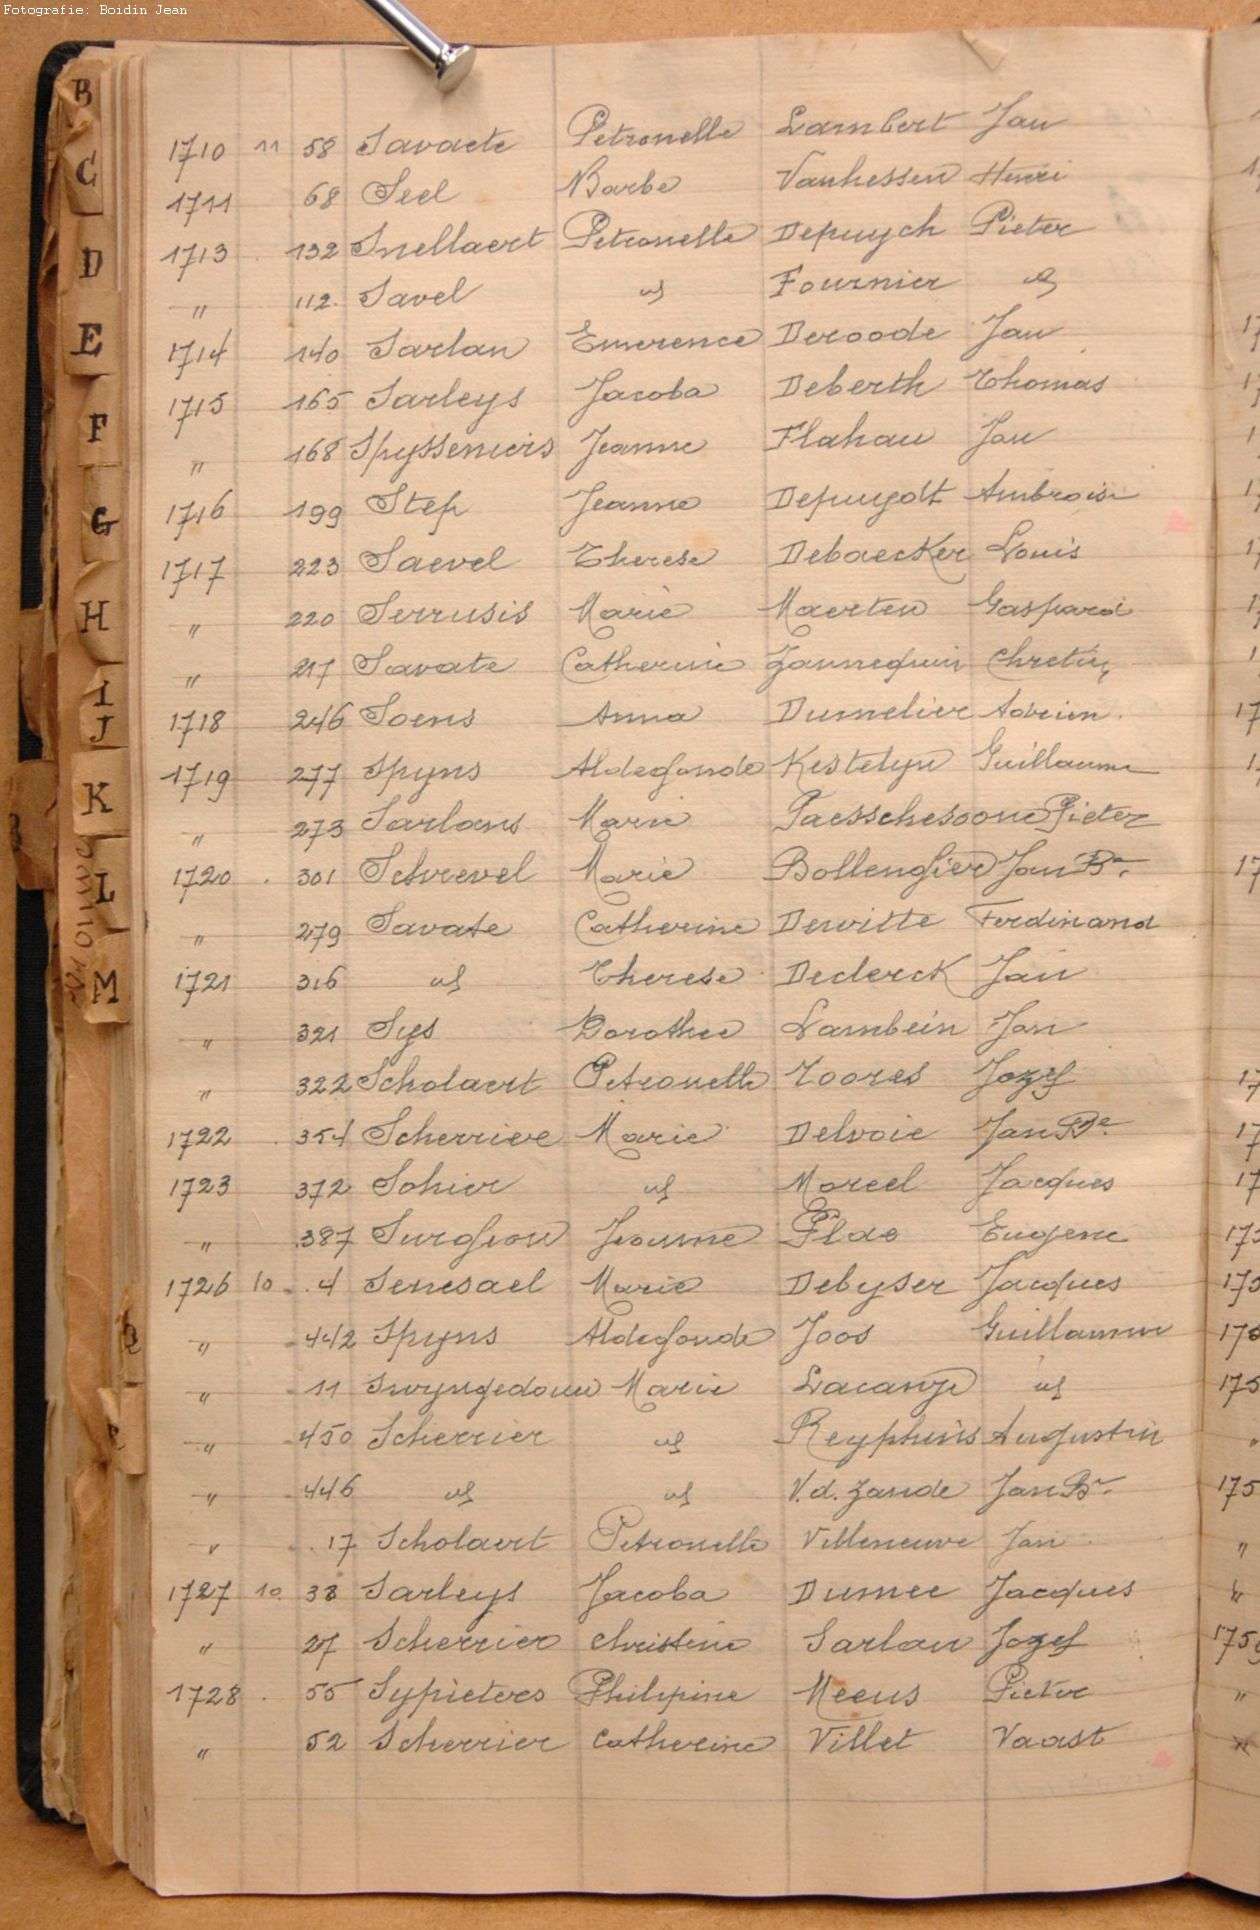 Fotografie: Boidin Jean
1710 11 58 Savaete Petronelle Lambert Jan
1711 68 Seel Barbe Vanhessen Henri
1713 132 Snellaert Petronelle Depuych Pieter
" 112 Savel id Fournier id
1714 140 Sarlan Emerence Deroode Jan
1715 165 Sarleys Jacoba Deberth Thomas
" 168 Spysseniers Jeanne Flahau Jan
1716 199 Step Jeanne Depuydt Ambroise
1717 223 Saevel Therese Debaecker Louis
" 220 Serrusis Marie Maerten Gaspard
" 217 Savate Catherine Zannequin Chretien
1718 246 Soens Anna Dumelier Adrien
1719 277 Spyns Aldegonde Kestelyn Guillaume
" 273 Sarlans Marie Paesschesoone Pieter
1720 301 Schrevel Marie Bollengier Jan Bte
" 279 Savate Catherine Dewitte Ferdinand
1721 316 id Therese Declerck Jan
" 321 Sys Dorothee Lambein Jan
" 322 Scholaert Petronelle Toores Jozef
1722 354 Scherrier Marie Delvoie Jan Bte
1723 372 Sohier id Marcel Jacques
" 387 Surgeon Jeanne Flao Eugene
1726 10 4 Senesael Marie Debyser Jacques
" 442 Spyns Aldegonde Joos Guillaume
" 11 Swyngedouw Marie Lacange id
" 450 Scherrier id Reyphins Augustin
" 446 id id V.d. Zande Jan Bte
" 17 Scholaert Petronelle Villeneuve Jan
1727 10 38 Sarleys Jacoba Dumee Jacques
" 27 Scherrier Christine Sarlan Jozef
1728 55 Sypieters Philipine Meeus Pieter
" 52 Scherrier Catherine Villet Vaast
B
C
D
E
F
G
H
I
J
K
L
M